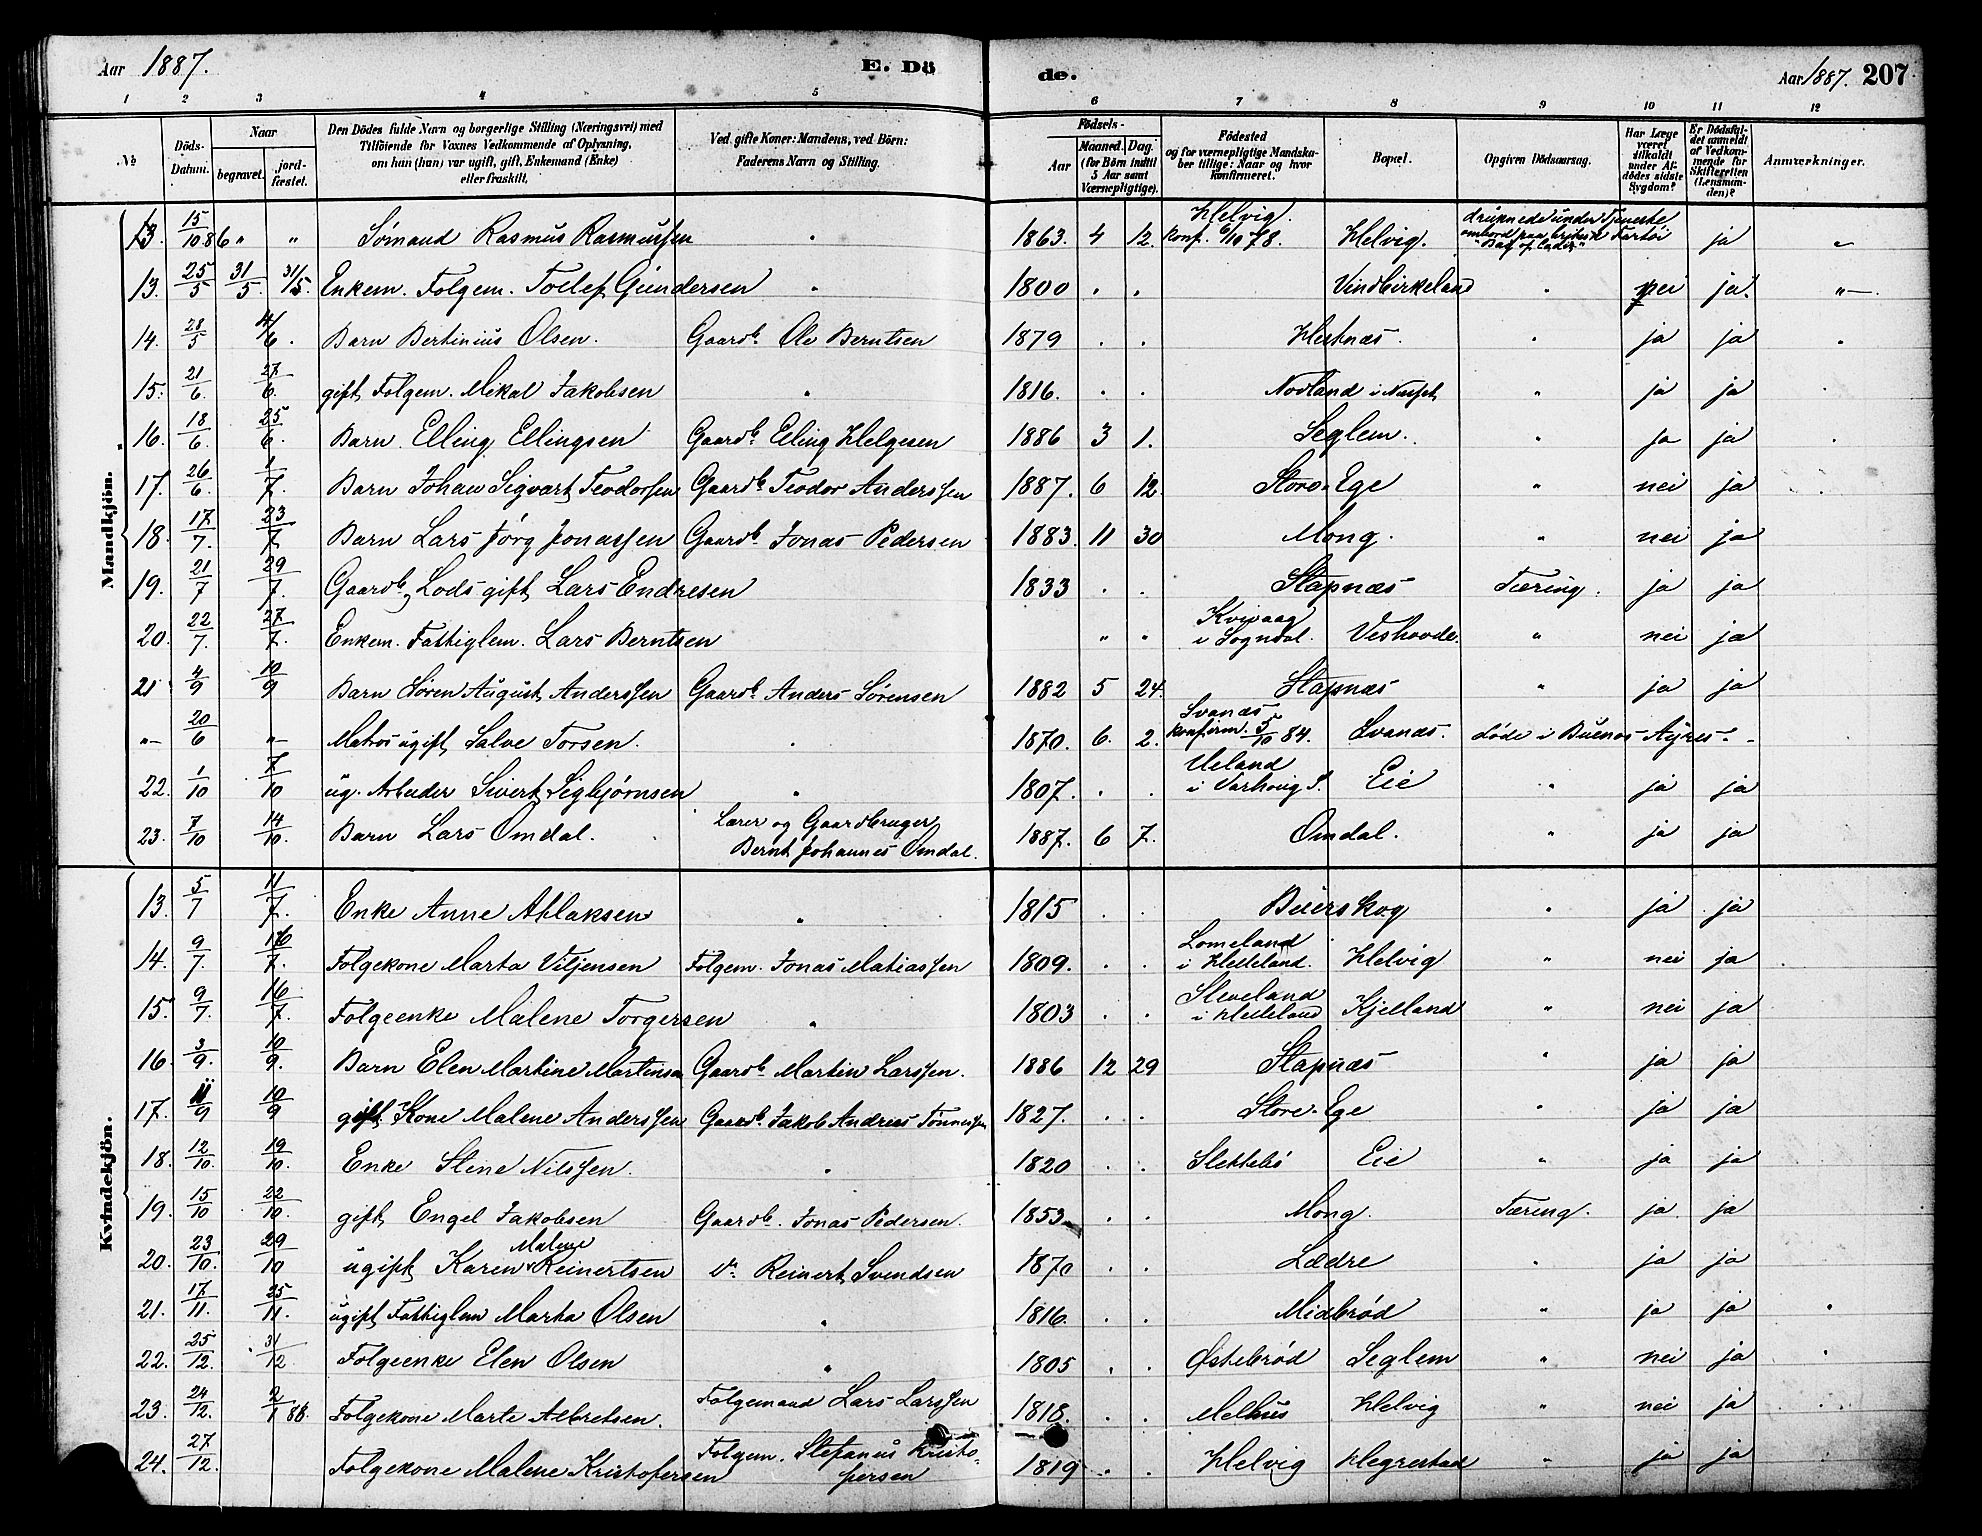 Aar 1887. E. Dö de. Aar 1887. 207
1 2 3 4 5 6 7 8 9 10 11 12
No Döds-Datum. Naar begravet. jord-fæstet. Den Dödes fulde Navn og borgerlige Stilling (Næringsvei) med Tilföiende for Voxnes Vedkommende af Oplysning, om han (hun) var ugift, gift, Enkemand (Enke) eller fraskilt. Ved gifte Koner: Mandens, ved Börn: Faderens Navn og Stilling. Födsels- Aar Maaned. Dag. (for Börn indtil 5 Aar samt Værnepligtige). Födested og for værnepligtige Mandskaber tillige: Naar og hvor konfirmeret. Bopæl. Opgiven Dödsaarsag. Har Læge været tilkaldt under Afdödes sidste Sygdom? Er Dödsfaldet anmeldt af Vedkommende for Skifteretten (Lensmanden)? Anmærkninger.
Mandkjön.
13. 15/10 86 " " Sömand Rasmus Rasmussen " 1863. 4 12. Helvig. konf. 6/10 78. Helvig. druknede under Tjeneste ombord paa britisk Fartöi ja "
13. 25/5 31/5. 31/5. Enkem. Folgem. Tollef Gundersen " 1800 . . Vindbirkeland " nei ja. "
14. 28/5 4/6. Barn Bertinius Olsen. Gaardb. Ole Berntsen 1879 . . Hestnæs. " ja ja "
15. 21/6. 27/6. gift Folgem. Mikal Jakobsen " 1816. . . Nodland i " ja ja
16. 18/6. 25/6. Barn Elling Ellingsen Gaardb. Elling Helgesen 1886 3 1. Seglem. " ja ja
17. 26/6. 1/7. Barn Johan Sigvart Teodorsen Gaardb. Teodor Anderssen 1887. 6 12 Store-Ege " nei ja
18. 17/7. 23/7. Barn Lars Jörg Jonassen Gaardb. Jonas Pedersen 1883. 11 30 Mong. " nei ja
19. 21/7 29/7. Gaardb. Lods gift Lars Endresen 1833 . . Stapnæs Tæring. ja ja
20. 22/7. 27/7. Enkem. Fattiglem. Lars Berntsen " " Kvivaag i Sogndal. Veshovde. " nei ja
21 4/9 10/9 Barn Sören August Anderssen Gaardb. Anders Sörensen 1882 5 24. Stapnæs " ja ja
" 20/6 " Matros ugift Salve Torsen. " 1870. 6. 2. Svanæs konfirm. 5/10 84. Svanæs. döde i Buenos Ayres.
22. 1/10 7/10 ug. Arbeider Sivert Sigbjørnsen " 1807. . . Ueland i Varhoug S. Eie " ja ja
23. 7/10 14/10. Barn Lars Omdal. Lærer og Gaardbruger Bernt Johannes Omdal. 1887. 6 7. Omdal. " ja ja
Kvindekjön.
13. 5/7 11/7. Enke Anne Aslaksen " 1815 . . Buerskog " ja ja
14. 9/7. 16/7. Folgekone Marta Viljensen Folgem. Jonas Matiassen 1809. . . Lomeland i Helleland. Helvig " nei ja
15. 9/7. 16/7. Folgeenke Malene Torgersen " 1803 . . Sleveland i Helleland Kjelland " nei ja
16. 3/9. 10/9. Barn Elen Martine Martinsen Gaardb. Martin Larssen. 1886 12 29 Stapnæs " ja ja
17. /9 10/9 gift Kone Malene Anderssen Gaardb. Jakob Andreas Tönnessen 1827. . . Store-Ege " ja ja
18. 12/10. 19/10. Enke Stene Nilssen. " 1820 . . Slettebö Eie " ja ja
19. 15/10 22/10. gift Engel Jakobsen Gaardb. Jonas Pedersen. 1853 . . Mong. Tæring. ja ja
20. 23/10. 29/10 ugift Karen Malene Reinertsen Reinert Svendsen 1870 . . Lædre " ja ja
21. 17/11. 25/11. ugift Fattiglem Marta Olsen " 1816. . . Midbröd " ja ja "
22. 25/12. 31/12 Folgeenke Elen Olsen " 1805 . . Östebröd Seglem " nei ja "
23. 24/12. 2/1 88. Folgekone Marte Albretsen. Folgemand Lars Larssen 1818. . . Melhus Helvig " nei ja
24. 27/12. Folgekone Malene Kristofersen Folgem. Stefanus Kristofersen 1819 . . Helvig Hegrestad " ja ja